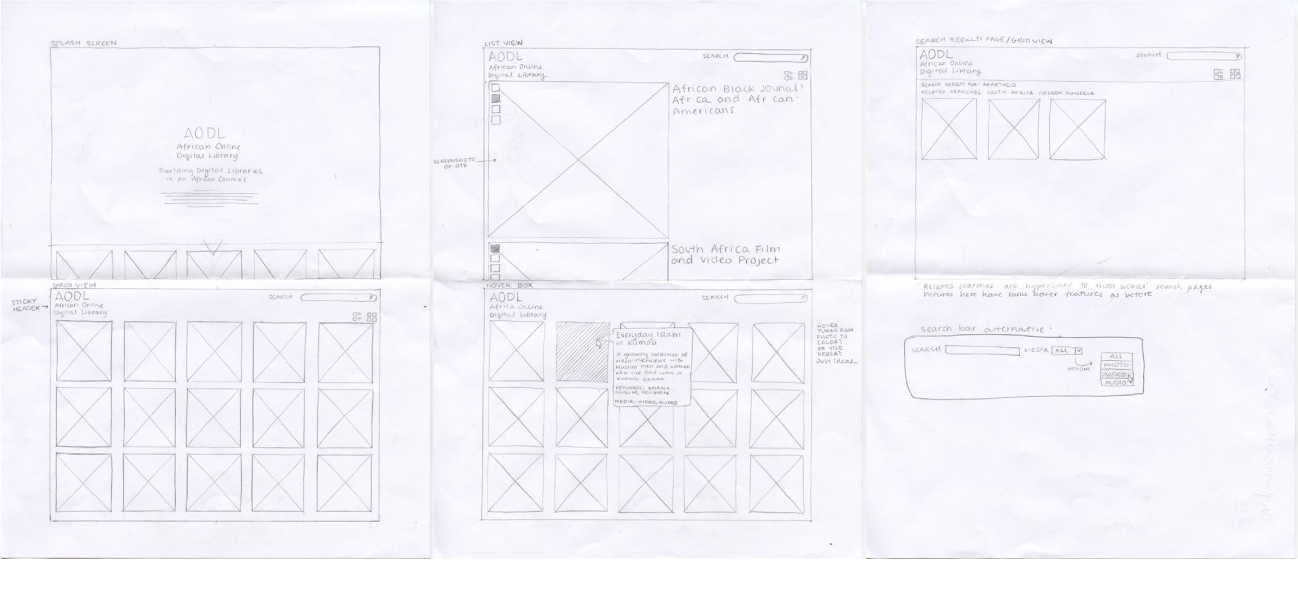 SPLASH SCREEN
AODL
African Online
Digital Library
Building Digital Libraries
in an African Context
GRID VIEW
STICKY
HEADER
AODL
African Online
Digital Library
SEARCH
LIST VIEW
AODL
African Online
Digital Library
SEARCH
African Black Jounal:
Africa and African-
Americans
SCREENSHOTS
OF SITE
South Africa Film
and Video Project
HOVER BOX
AODL
Africa Online
Digital Library
SEARCH
Everyday Islam
in Kumasi
A growing collection of
video interviews with
Muslim men and women
who live and work in
Kumasi Ghana
KEYWORDS: GHANA,
MEDIA: VIDEO, AUDIO
HOVER
TURNS B&W
PHOTO TO
COLOR?
OR VICE
VERSA?
Just ideas...
SEARCH RESULTS PAGE/GRID VIEW
AODL
African Online
Digital Library
SEARCH
SEARCH RESULTS FOR: APARTHEID
RELATED SEARCHES: SOUTH AFRICA, NELSON MANDELA
Related searches are hyperlinks to those words' search pages
Pictures here have same hover features as before
Search bar alternative:
SEARCH
MEDIA
ALL
OPTIONS
ALL
PHOTO
VIDEO
AUDIO